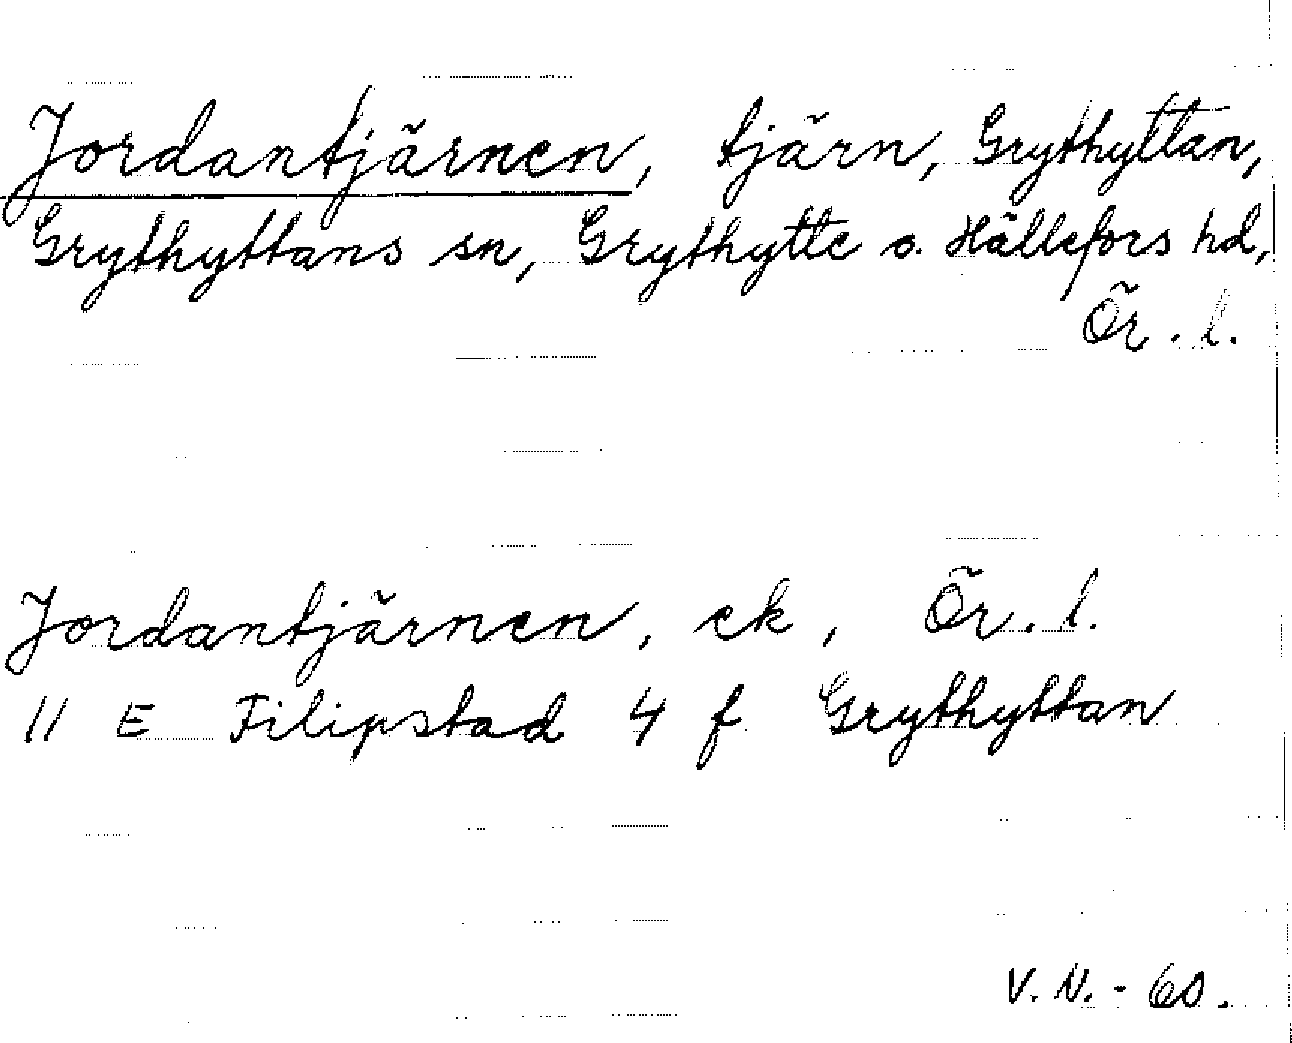 Jordantjärnen, tjärn, Grythyttan,
Grythyttans sn, Grythytte o. Hällefors hd,
Ör. l.
Jordantjärnen, ek, Ör. l.
11 E Filipstad 4 f Grythyttan
V. N. - 60.